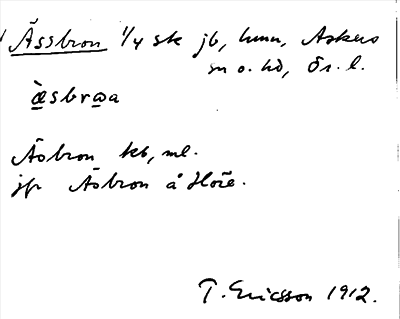 Ässbron 1/4 sk jb, hmn, Askers
sn o. hd, Ör. l.
æ̀sbrωa
Äsbron kb, ml.
jfr Äsbron å Höje.
T. Ericsson 1912.